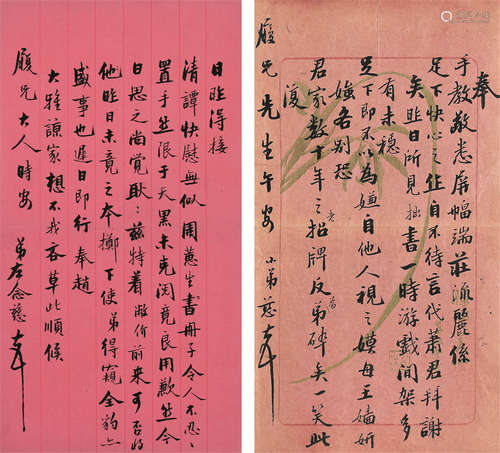 奉
手教敬悉屏幅端莊流麗係
足下快心之作自不待言代蕭君拜謝
矣昨日所見拙書一時游戲間架多
有未穩
足下即不以為媸自他人視之嫫母王嬙妍
媸各別恐
君家數十年之老招牌反為弟碎矣一笑此
復
履元先生午安 小弟慈
日昨得接
清譚快慰無似周蕙生書冊子令人不忍
置手然限于天黑未克閱竟良用歉然今
日思之尚覺耿耿茲特着敝价前來可否將
他昨日未竟之本擲下使弟得窺全豹亦
盛事也遲日即行奉趙
大雅謙家想不我吝草此順候
履元大人時安 弟左念慈